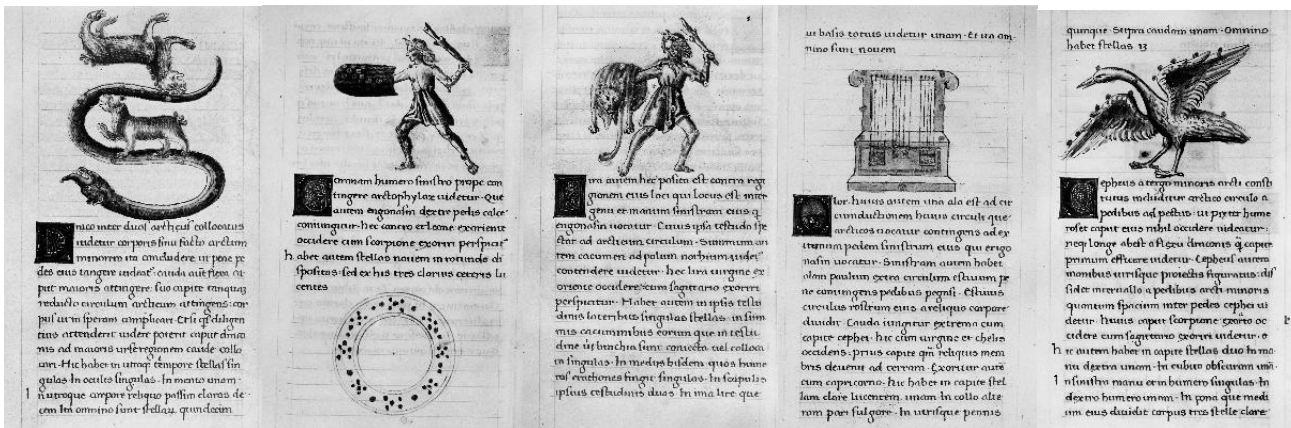 nico inter duos arthicus collocatus
uidetur corporis sinu facto arcturum
minorem ita concludere ut pene pe
des eius tangere uideatur cauda autem flexa ca
put maioris attingere: suo capite tanquam
reducto circulum arcticum attingens: cor
pus ut in speram complicare
attenderit uidere poterit caput draco
nis ad maioris urse regionem caude collo
cari. Hic habet in utroque tempore stellas sin
gulas. In oculis singulas. In mento unam.
In utroque corpore reliquo passim claras de
cem Ita omnino sunt stellarum quindecim
omnam humero sinistro prope con
tingere arctophylax uidetur. Que
autem engonasin dextri pedis calce
coniungitur. hec cancro et leone exoriente
occidere cum scorpione exoriri perspicitur
habet autem stellas nouem in rotundo di
spositas. sed ex his tres clarius ceteris lu
centes
ira autem hec posita est contra regi
gionem eius loci qui locus est inter
genu et manum sinistram eius q
engonasin uocatur. Cuius ipsa testudo spe
ctat ad arcticum circulum. Summum au
tem cacumen ad polum nothium uidetur
contendere uidetur. hec lira uirgine ex
oriente occidere: cum sagitario exoriri
perspicitur. Habet autem in ipsis testu
dinis lateribus singulas stellas. in sum
mis cacuminibus eorum que in testu
dine ut brachia sunt coniecta uel colloca
ta singulas. In mediis hisdem quos hume
ros eratosthenes fingit singulas. In scapulis
ipsius testudinis duas. In ima lire que
ut basis totius uidetur unam. Et ita om
nino sunt nouem
lor. huius autem una ala est ad cir
cunductionem huius circuli que
arcticos uocatur contingens ad ex
tremum pedem sinistrum eius qui engo
nasin uocatur. Sinistram autem habet
alam paulum extra circulum estiuum pe
ne contingens pedibus pegasi. Estiuus
circulus rostrum eius a reliquo corpore
diuidit. Cauda iungitur extrema cum
capite cephei. hic cum uirgine et chelis
occidens: prius capite quam reliquis mem
bris deuenit ad terram. Exoritur autem
cum capricorno. hic habet in capite stel
lam clare lucentem. unam. In collo alte
ram pari fulgore. In utrisque pennis
quinque. Supra caudam unam. Omnino
habet stellas 13
epheus a tergo minoris arcti consti
tutus includitur arctico circulo a
pedibus ad pectus. ut preter hume
ros et caput eius nihil occidere uideatur.
neque longe abest a flexu draconis q caput
primum efficere uidetur. Cepheus autem
manibus utrisque proiectis figuratus: dis
sidet interuallo a pedibus arcti minoris
quantum spacium inter pedes cephei ui
detur. huius caput scorpione exorto oc
cidere cum sagitario exoriri uidetur.
hic autem habet in capite stellas duo In ma
nu dextra unam. In cubito obscuram unam.
In sinistra manu et in humero singulas. In
dextro humero unam. In zona que medi
um eius diuidit corpus tres stelle clare